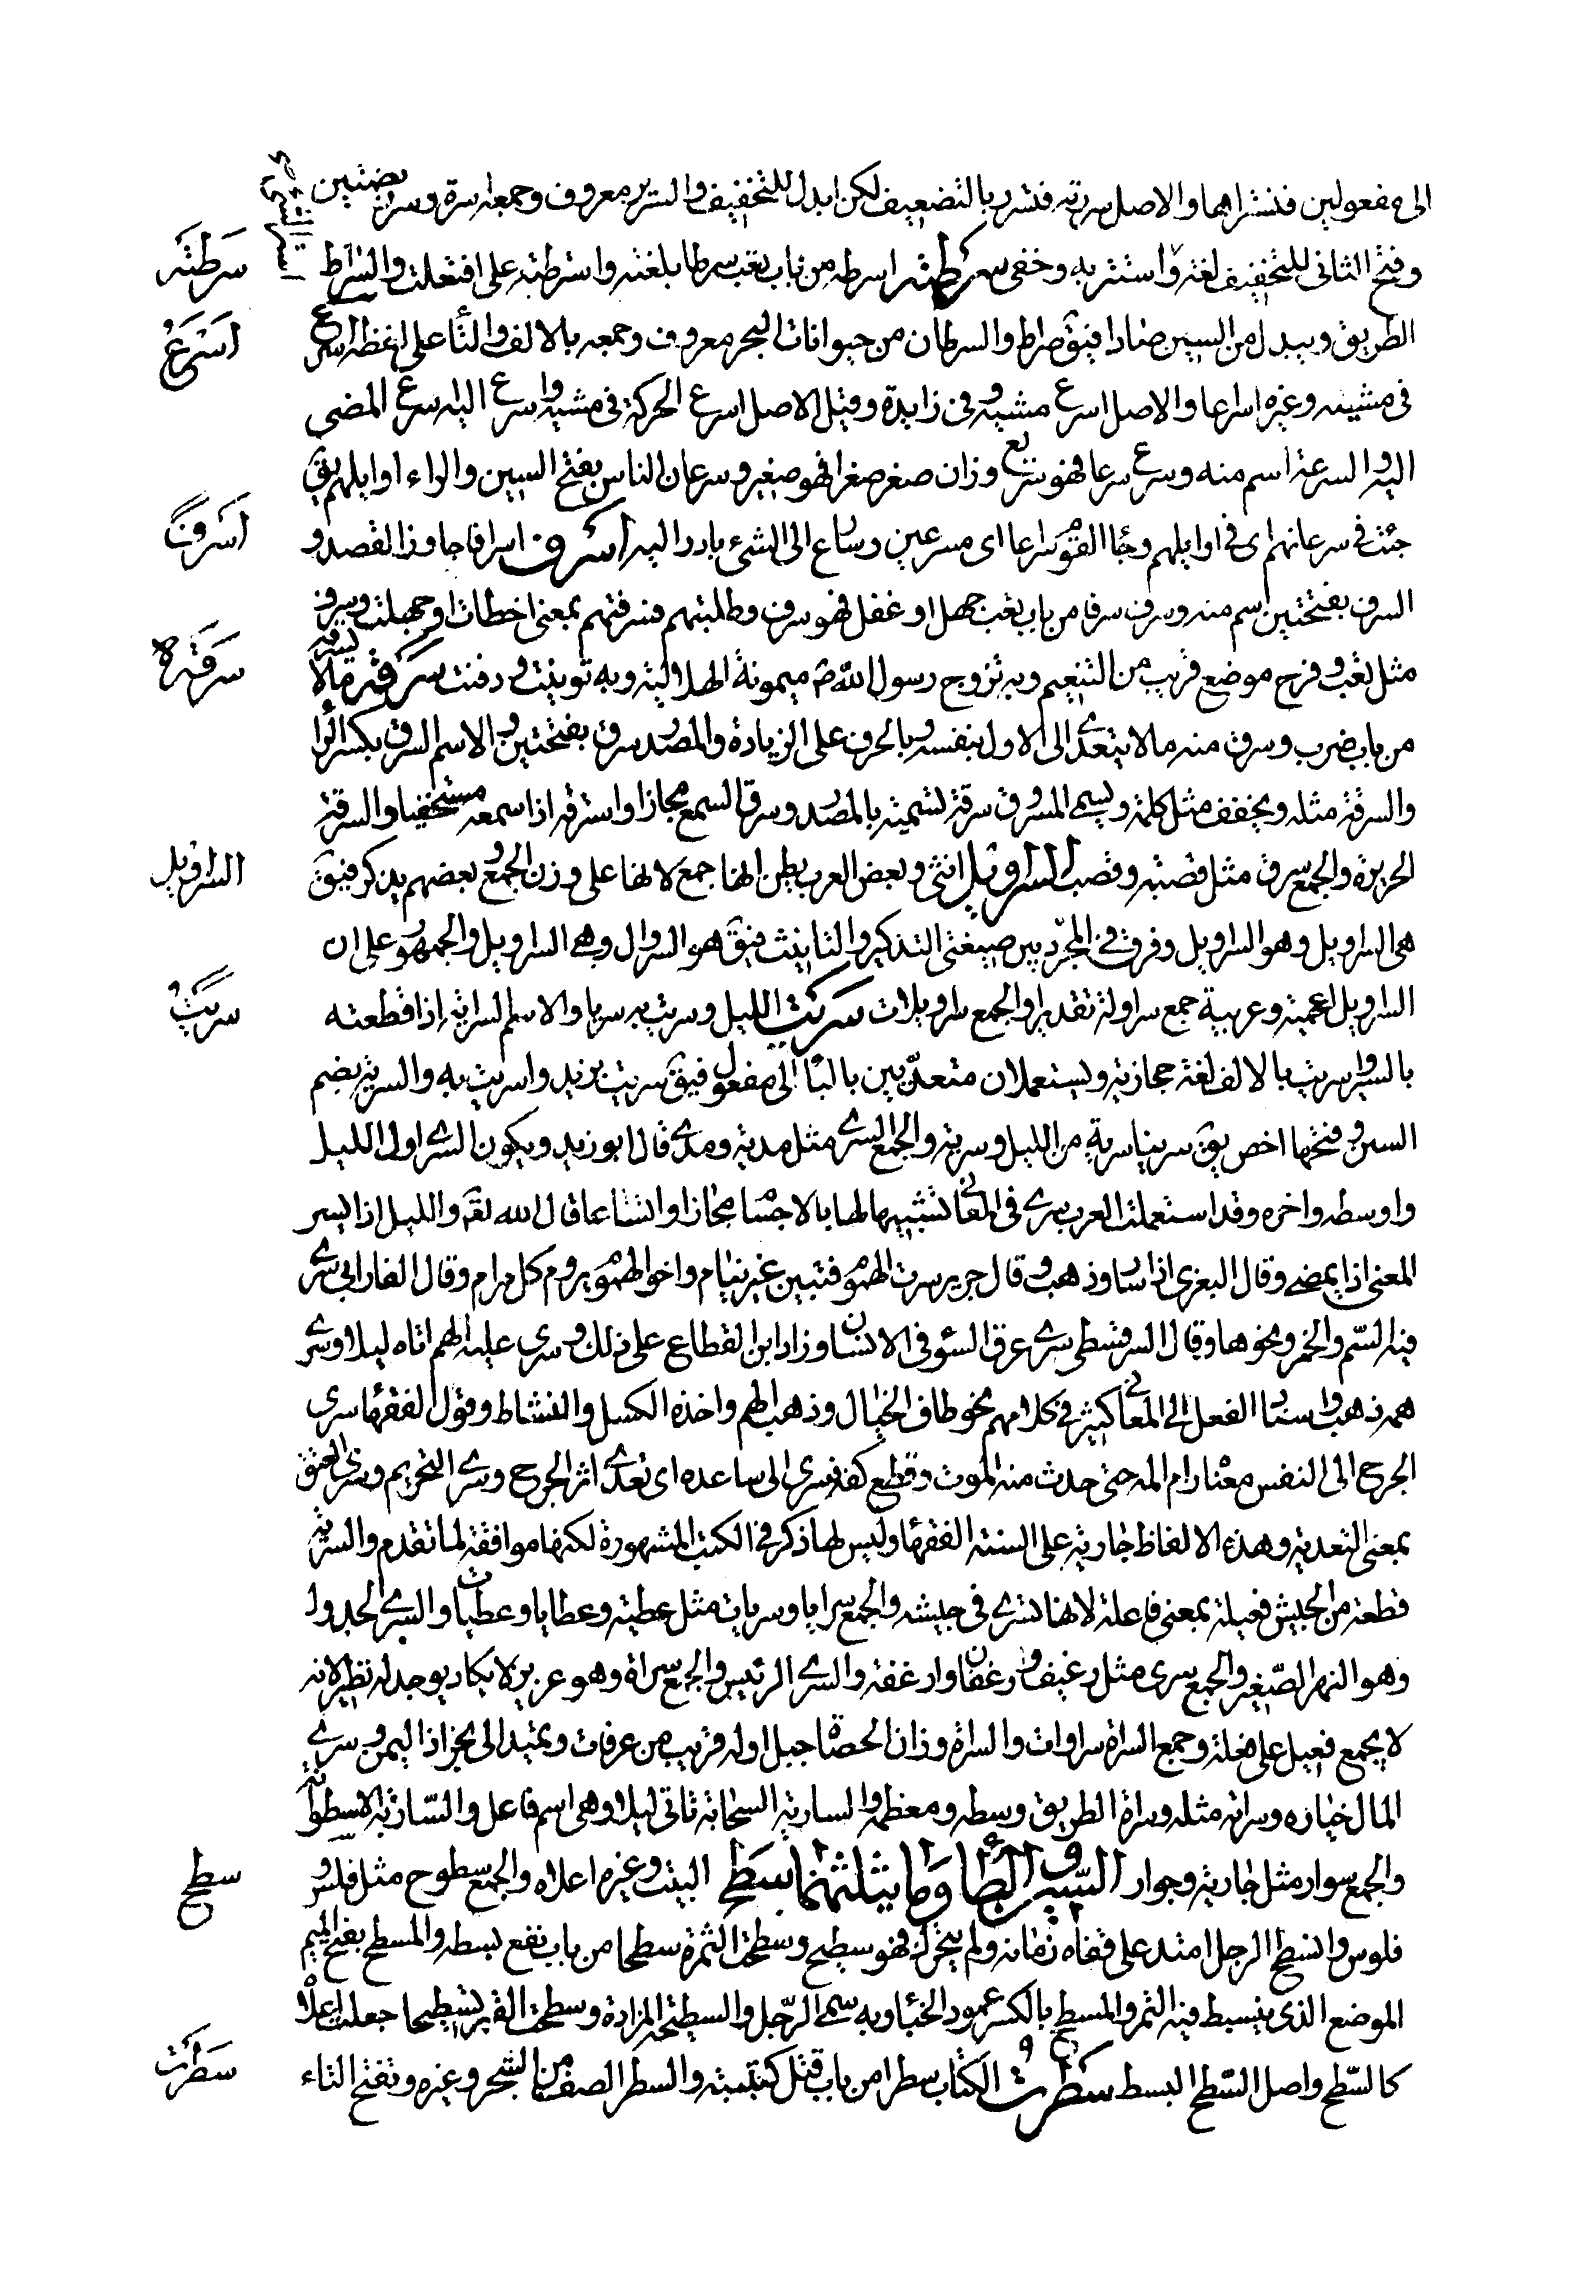 الى مفعولين فتسراها والاصل سررته فتسرر بالتضعيف لكن ابدل للتخفيف والسرير معروف وجمعه اسرة وسرر بضمتين
وفتح الثانى للتخفيف لغة واستتر به وخفى سرطته اسرطه من باب تعب سرطا بلعته واسترطته على افتعلت والسراط
سرطته
الطريق ويبدل من السين صادا فيق صراط والسرطان من حيوانات البحر معروف وجمعه بالالف والتا على لفظه اسرع
اسرع
فى مشيه وغيره اسراعا والاصل اسرع مشيه وفى زايدة وقيل الاصل اسرع الحركة فى مشيه واسرع اليه سرع المضى
اليه والسرعة اسم منه وسرع سرعا فهو سريع وزان صغر صغرا فهو صغير وسرعان الناس بفتح السين والراء اوايلهم يق
جئت فى سرعانهم اى فى اوايلهم وجا القوم سراعا اى مسرعين وسارع الى الشىء بادر اليه اسرف اسرافا جاوز القصد و
اسرف
السرف بفتحتين اسم منه وسرف سرفا من باب تعب جهل او غفل فهو سرف وطلبتهم فسرفتهم بمعنى اخطات او جهلت وسرف
مثل تعب وفرح موضع قريب من التنعيم وبه تزوج رسول الله ص ميمونة الهلالية وبه توفيت ودفنت سرقه مالا يسرقه
سرقه
من باب ضرب وسرق منه مالا يتعدى الى الاول بنفسه وبالحرف على الزيادة والمصدر سرق بفتحتين والاسم السرق بكسر الرا
والسرقة مثله ويخفف مثل كلمة ويسمى المسروق سرقة تسمية بالمصدر وسرق السمع مجازا واسترقه اذا سمعه مستخفيا والسرقة
الحريرة والجمع سرق مثل قصبة وقصب السراويل انثى وبعض العرب يظن انها جمع لانها على وزن الجمع وبعضهم يذكر فيق
السراويل
هى السراويل وهو السراويل وفرق فى المجرد بين صيغتى التذكير والتانيث فيق هو السروال وهى السراويل والجمهور على ان
السراويل اعجمية وعربية جمع سراولة تقديرا والجمع سراويلات سريت الليل وسريت به سريا والاسم السراية اذا قطعته
سريت
بالسير واسريت بالالف لغة حجازية ويستعملان متعديين بالبا الى مفعول فيق سريت بزيد واسريت به والسرية بضم
السين وفتحها اخص يق سرينا سرية من الليل وسرية والجمع السرى مثل مدية ومدى قال ابو زيد ويكون السرى اول الليل
واوسطه واخره وقد استعملت العرب سرى فى المعانى تشبيها لها بالاجسام مجازا واتساعا قال الله تعه والليل اذا يسر
المعنى اذا يمضى وقال البغوى اذا سار وذهب وقال جرير سرت الهموم فتبين غير نيام واخو الهموم يروم كل مرام وقال الفارابى سرى
فيه السم والخمر ونحوها وقال السرقسطى سرى عرق السوء فى الانسان وزاد ابن القطاع على ذلك وسرى عليه الهم اتاه ليلا وسرى
همه ذهب واسناد الفعل الى المعانى كثير فى كلامهم نحو طاف الخيال وذهب الهم واخذه الكسل والنشاط وقول الفقها سرى
الجرح الى النفس معناه دام المه حتى حدث منه الموت وقطع كفه فسرى الى ساعده اى تعدى اثر الجرح وسرى التحريم وسرى العتق
بمعنى التعدية وهذه الالفاظ جارية على السنة الفقها وليس لها ذكر فى الكتب المشهورة لكنها موافقة لما تقدم والسرية
قطعة من الجيش فعيلة بمعنى فاعلة لانها تسرى فى جيشه والجمع سرايا وسريات مثل عطية وعطايا وعطيات والسرى الجدول
وهو النهر الصغير والجمع سرى مثل رغيف ورغفان وارغفة والسرى الرئيس والجمع سراة وهو عزيز لا يكاد يوجد له نظير لانه
لا يجمع فعيل على فعلة وجمع السراة سراوات والسراة وزان الحصاة جبل اوله قريب من عرفات ويمتد الى نجران اليمن وسرى
المال خياره وسراته مثله وسراة الطريق وسطه ومعظمه والسارية السحابة تاتى ليلا وهى اسم فاعل والسارية الاسطوانة
والجمع سوار مثل جارية وجوار السين والطا وما يثلثهما سطح البيت وغيره اعلاه والجمع سطوح مثل فلس و
سطح
فلوس وانسطح الرجل امتد على قفاه زمانه ولم يتحرك فهو سطيح وسطحت الثمرة سطحا من باب نفع بسطه والمسطح بفتح الميم
الموضع الذى ينبسط فيه الثمر والمسطح بالكسر عمود الخباء وبه سمى الرجل والسطيحة المزادة وسطحت القبر تسطيحا جعلت اعلاه
كالسطح واصل السطح البسط سطرت الكتاب سطرا من باب قتل كتبته والسطر الصف من الشجر وغيره وتفتح الثاء
سطرت